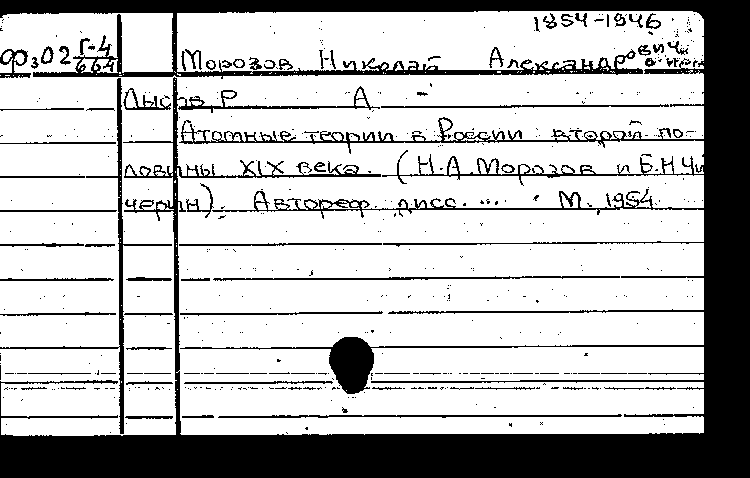 1854-1946
ф302 Г-4/664 Морозов, Николай Александрович
Лысов, Р А -
Атомные теории в России второй по-
ловины XIX века. (Н.А.Морозов и Б.Н.Чи
черин). Автореф. дисс. .... М., 1954